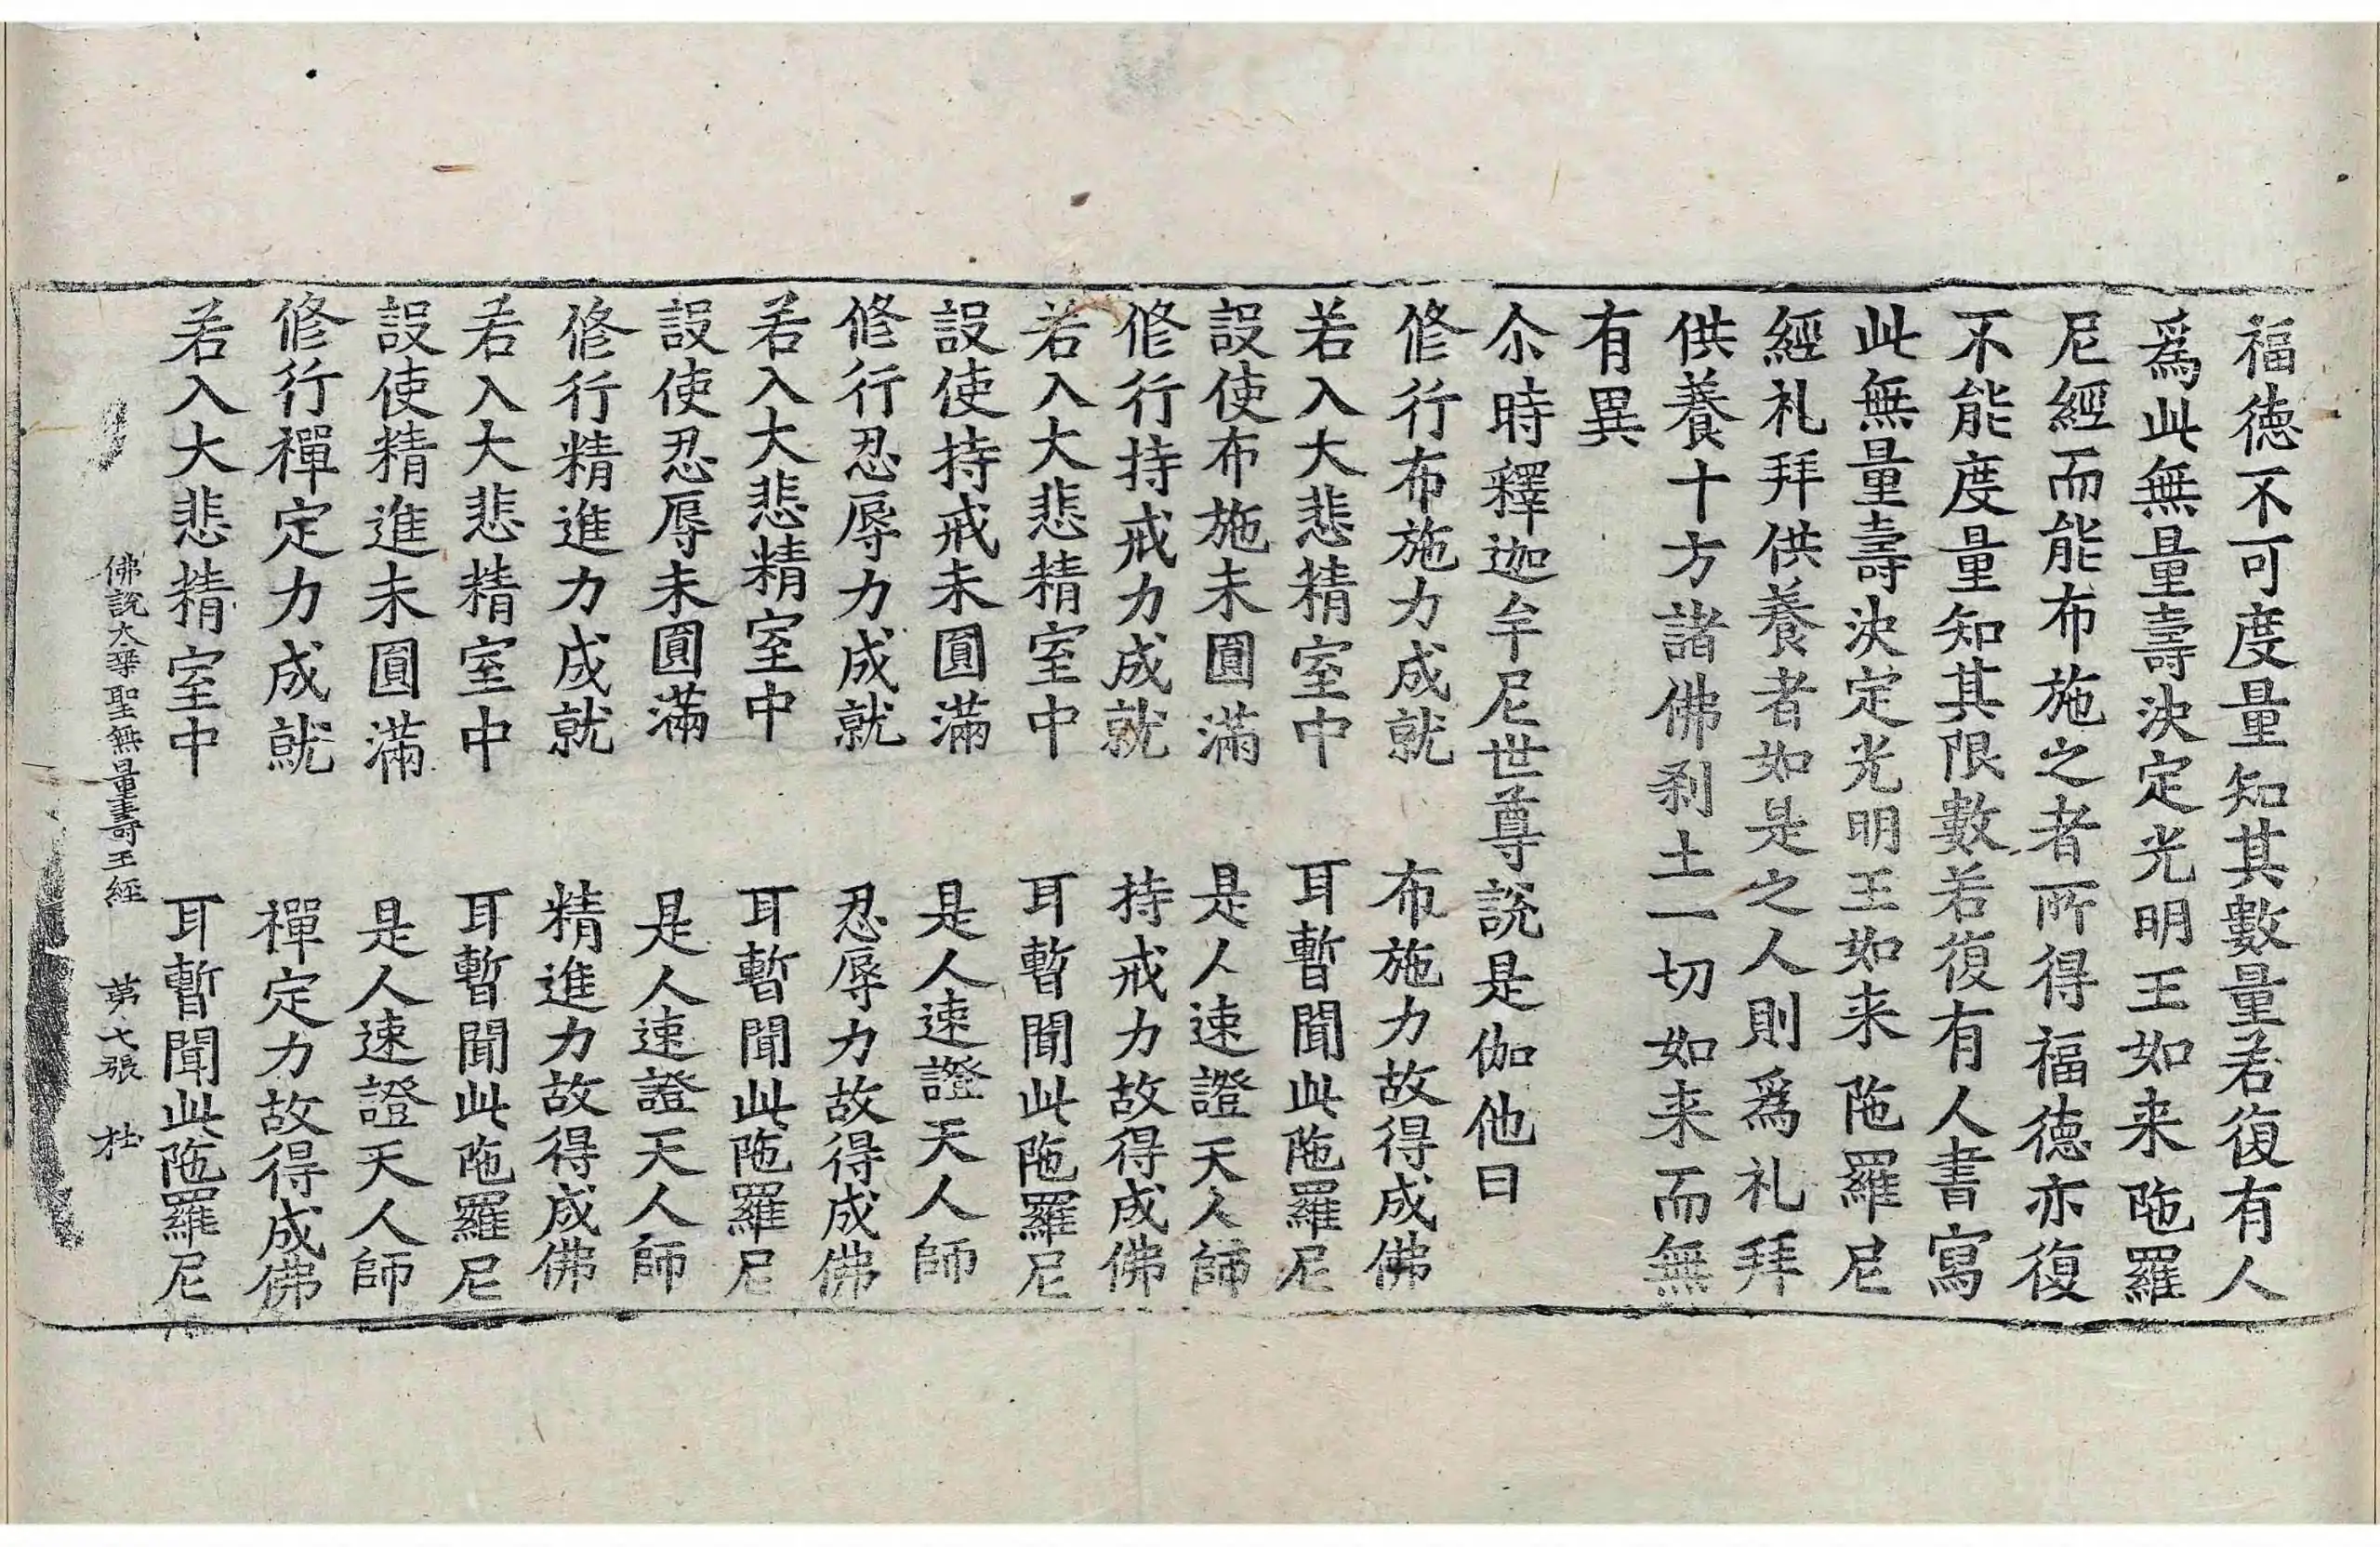 福德不可度量知其數量若復有人
爲此無量壽決定光明王如来陁羅
尼經而能布施之者所得福德亦復
不能度量知其限數若復有人書寫
此無量壽決定光明王如来陁羅尼
經礼拜供養者如是之人則爲礼拜
供養十方諸佛刹土一切如来而無
有異
尒時釋迦牟尼世尊說是伽他曰
修行布施力成就　布施力故得成佛
若入大悲精室中　耳暫聞此陁羅尼
設使布施未圓滿　是人速證天人師
修行持戒力成就　持戒力故得成佛
若入大悲精室中　耳暫聞此陁羅尼
設使持戒未圓滿　是人速證天人師
修行忍辱力成就　忍辱力故得成佛
若入大悲精室中　耳暫聞此陁羅尼
設使忍辱未圓滿　是人速證天人師
修行精進力成就　精進力故得成佛
若入大悲精室中　耳暫聞此陁羅尼
設使精進未圓滿　是人速證天人師
修行禪定力成就　禪定力故得成佛
若入大悲精室中　耳暫聞此陁羅尼
佛說大乗聖無量壽王經　第七張　杜